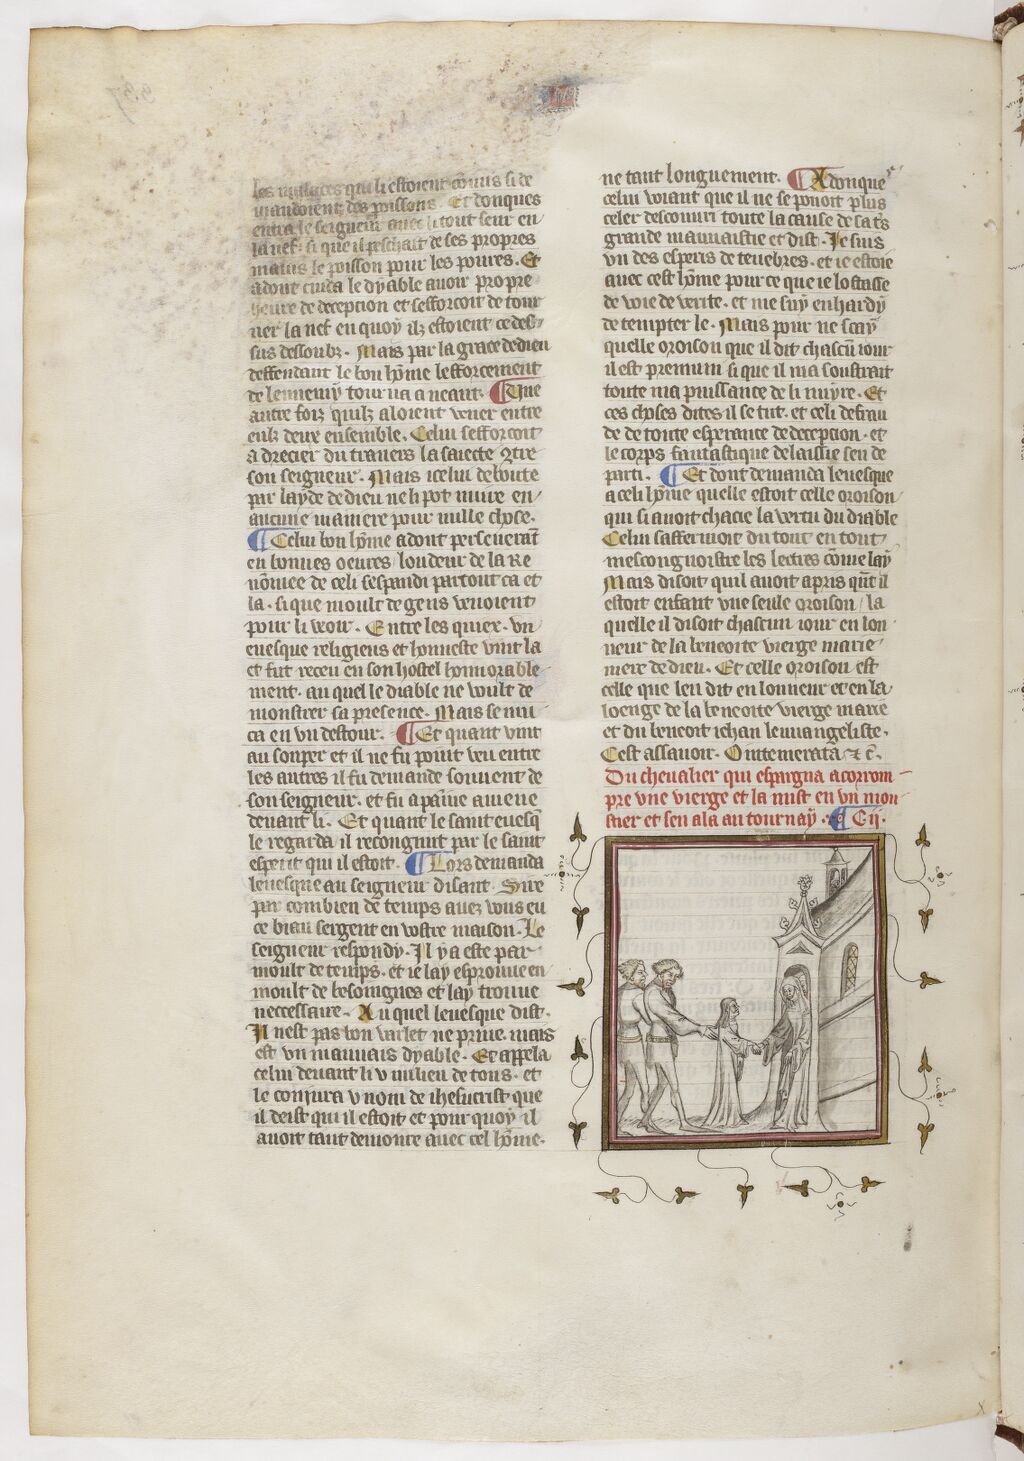 les viandes qui li estoient cōmis si de
mandoient des poissons. Et donques
entra le seigneur auec li tout seul en
la nef. si que il peschast de ses propres
mains le poisson pour les poures. Et
adont cuida le dyable auoir propre
heure de deception et sefforcoit de tour
ner la nef en quoy ilz estoient ce des
sus dessoubz. Mais par la grace de dieu
deffendant le bon hōme lefforcement
de lennemy tourna a neant. ¶ Vne
autre foiz quilz aloient vener entre
eulz deux ensemble. Celui sefforcoit
a drecier du trauers la saiecte ꝯtre
son seigneur. Mais icelui deboute
par layde de dieu ne li pot nuire en
aucune maniere pour nulle chose.
¶ Celui bon hōme adont perseuerāt
en bonnes oeures. loudeur de la re
nōmee de celi sespandi partout ca et
la. si que moult de gens venoient
pour li veoir. Entre les quiex. vn
euesque religieus et honneste vint la
et fut receu en son hostel honnorable
ment. au quel le diable ne voult de
monstrer sa presence. Mais se mu
ca en vn destour. ¶ Et quant vint
au souper et il ne fu point veu entre
les autres il fu demande souuent de
son seigneur. et fu a paine amene
deuant li. Et quant le saint euesq̄
le regarda il recongnut par le saint
esperit qui il estoit. ¶ Lors demanda
leuesque au seigneur disant. Sire
par combien de temps auez vous eu
ce biau sergent en vostre maison. Le
seigneur respondy. Il y a este par
moult de temps. et ie lay esprouue en
moult de besoingnes et lay trouue
necessaire. Au quel leuesque dist.
Il nest pas bon varlet ne priue. mais
est vn mauuais dyable. Et appela
celui deuant li v milieu de tous. et
le coniura v nom de ihesucrist que
il deist qui il estoit et pour quoy il
auoit tant demoure auec cel hōme.
ne tant longuement. ¶ Adonque
celui voiant que il ne se pouoit plus
celer descouuri toute la cause de sa t̄s
grande mauuaistie et dist. Ie suis
vn des esperis de tenebres. et ie estoie
auec cest hōme pour ce que ie lostasse
de voie de verite. et me suy enhardy
de tempter le. Mais pour ne scay
quelle oroison que il dit chascū iour
il est premuni si que il ma soustrait
toute ma puissance de li nuyre. Et
ces choses dites il se tut. et celi defrau
de de toute esperance de deception. et
le corps fantastique delaissie sen de
parti. ¶ Et dont demanda leuesque
a celi hōme quelle estoit celle oroison
qui si auoit chacie la vertu du diable
Celui saffermoit du tout en tout
mescongnoistre les lectres cōme lay
Mais disoit quil auoit apris quāt il
estoit enfant vne seule oroison. la
quelle il disoit chascun iour en lon
neur de la benoite vierge marie
mere de dieu. Et celle oroison est
celle que len dit en lonneur et en la
loenge de la benoite vierge marie
et du benoit iehan leuuangeliste.
Cest assauoir. O intemerata ⁊ c̄.
Du cheualier qui espargna a corrom
pre vne vierge et la mist en vn mon
stier et sen ala au tournay. ¶ Cij.